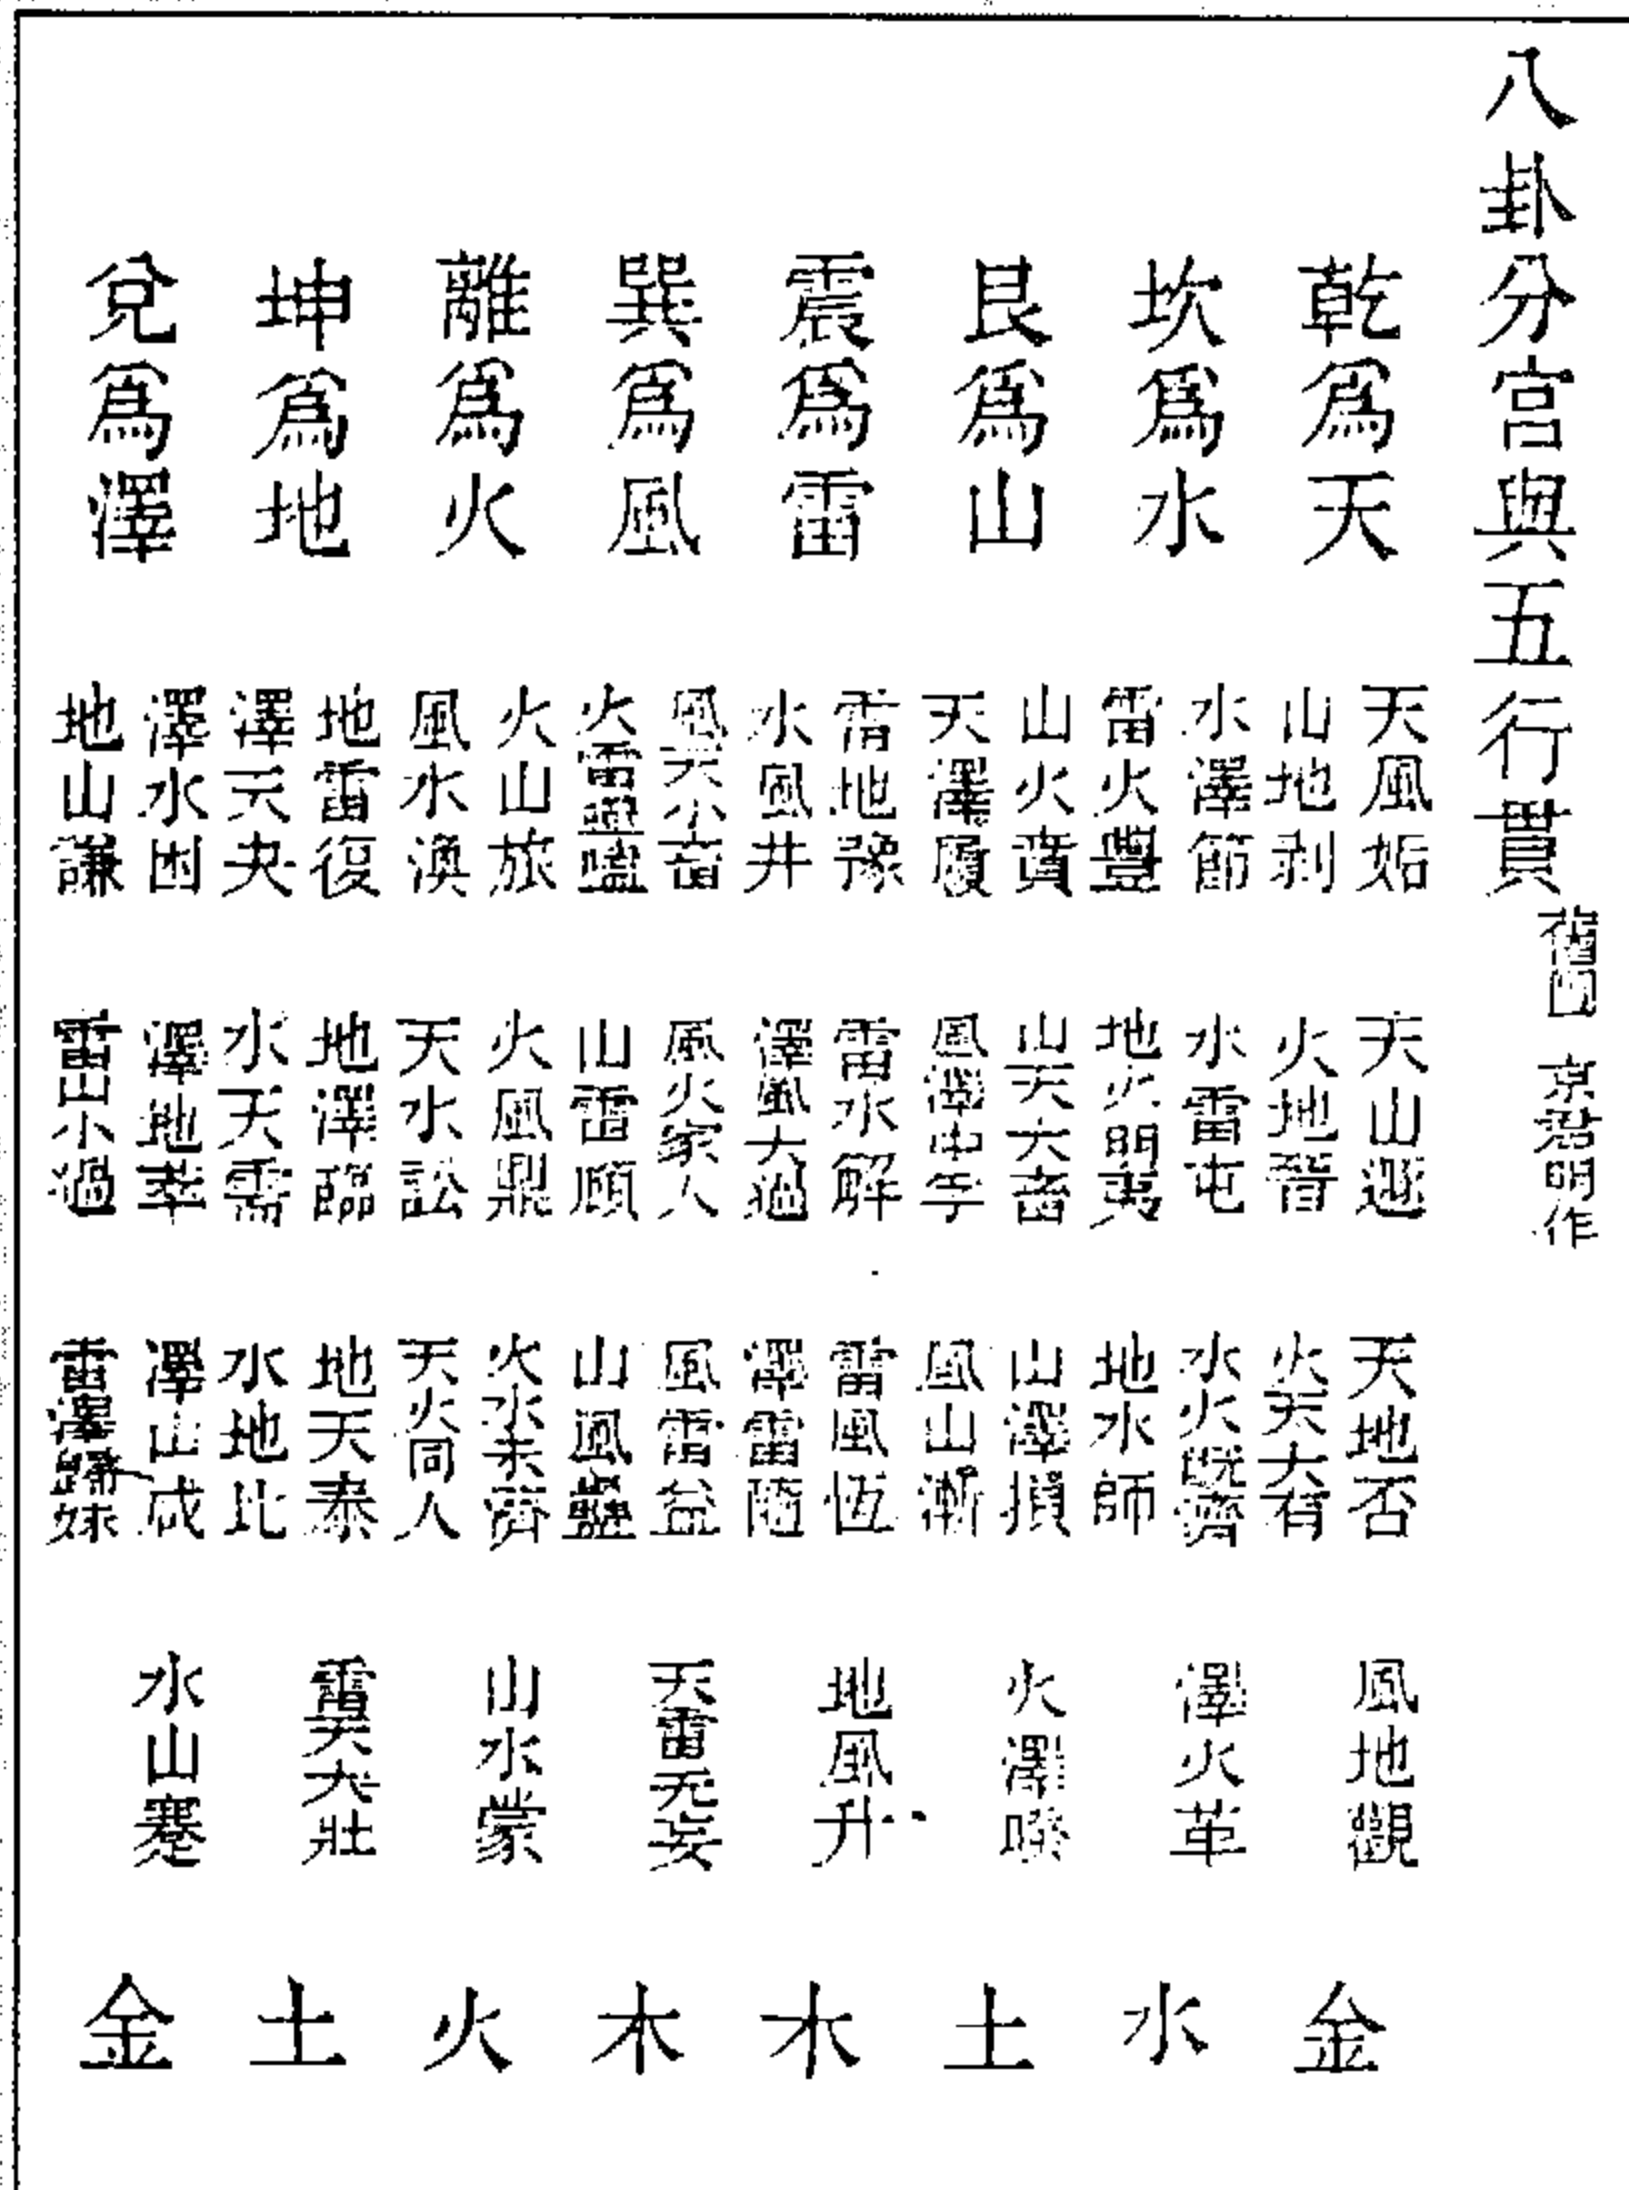 八卦分宮與五行貫 舊圖 京君明作
乾爲天
天風姤 天山遯 天地否 風地觀
山地剥 火地晉 火天大有
金
坎爲水
水澤節 水雷屯 水火既濟 澤火革
雷火豐 地火明夷 地水師
水
艮爲山
山火賁 山天大畜 山澤損 火澤睽
天澤履 風澤中孚 風山漸
土
震爲雷
雷地豫 雷水解 雷風恆 地風升
水風井 澤風大過 澤雷隨
木
巽爲風
風天小畜 風火家人 風雷益 天雷无妄
火雷噬嗑 山雷頤 山風蠱
木
離爲火
火山旅 火風鼎 火水未濟 山水蒙
風水渙 天水訟 天火同人
火
坤爲地
地雷復 地澤臨 地天泰 雷天大壯
澤天夬 水天需 水地比
土
兌爲澤
澤水困 澤地萃 澤山咸 水山蹇
地山謙 雷山小過 雷澤歸妹
金